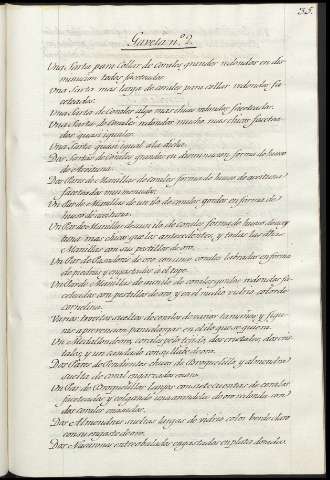 35.
Gaveta n.º 2.
Una Sarta para Collar de Corales grandes redondos en dis
minucion todos facetados.
Una Sarta mas larga de corales para collar redondos fa
cetados.
Una Sarta de Corales algo mas chicos redondos facetados.
Una Sarta de Corales redondos mucho mas chicos faceta
dos quasi iguales.
Una Sarta quasi igual ala dicha.
Dos Sartas de Corales grandes en disminucion forma de hueso
de aceituna.
Dos Pares de Manillas de corales forma de hueso de aceituna
facetados mui menudos.
Un Par de Manillas de un ilo de corales gordos en forma de
hueso de aceituna.
Un Par de Manillas de un ilo de corales forma de hueso de acey
tuna mas chicos que los antecedentes, y todas las dhas
Manillas con sus pestillos de oro.
Un Par de de oro con cinco corales labrados en forma
de piedras y engastados al tope.
Un Par de Manillas de un ilo de corales gordos redondos fa
cetados con pestillos de oro, y en el medio vidrio color de
cornelina.
Varias sueltas de corales de varios tamaños y figu
ras a prevencion para alargar en el lo que se quiera.
Un Medallon de oro, corales pelo texido, dos cristales, dos
y un candado con sello de oro.
Dos Pares de Pendientes chicos de Broquelillo y almendra
suelta de coral engarzados en oro.
Un Par de Broquelillos largos con siete cuentas de corales
facetadas y colgando una arandela de oro redonda con
dos corales
Dos Almendras sueltas largas de vidrio color verde claro
con su engaste de oro.
Dos entreboladas engastadas en plata doradas.